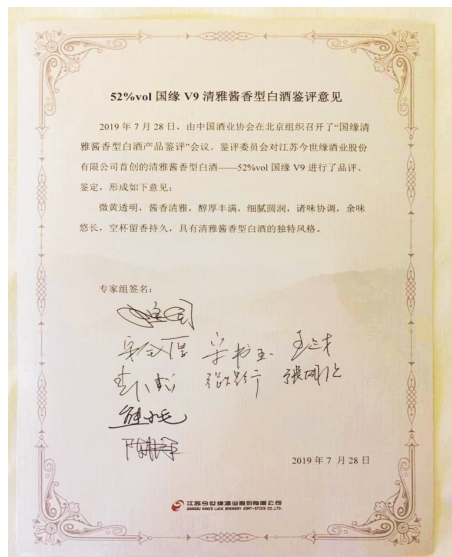 52%vol 国缘 V9 清雅酱香型白酒鉴评意见
2019 年 7 月 28 日，由中国酒业协会在北京组织召开了“国缘清
雅酱香型白酒产品鉴评”会议。鉴评委员会对江苏今世缘酒业股份
有限公司首创的清雅酱香型白酒——52%vol 国缘 V9 进行了品评、
鉴定，形成如下意见：
微黄透明，酱香清雅，醇厚丰满，细腻圆润，诸味协调，余味
悠长，空杯留香持久，具有清雅酱香型白酒的独特风格。
专家组签名：
宋书玉
2019 年 7 月 28 日
江苏今世缘酒业股份有限公司
JIANGSU KING'S LUCK BREWERY JOINT-STOCK CO.,LTD.